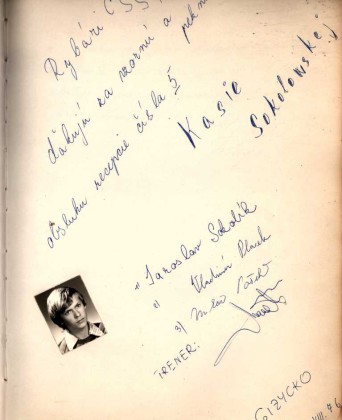 Rybári ČSS
ďakujú za vzornú a
obsluhu recepcie čísla 5
Kasie
Sokolowskej
1) Jaroslav Sokolík
2) Vladimír
3) Milan
TRÉNER:
GIŻYCKO
VIII. 76